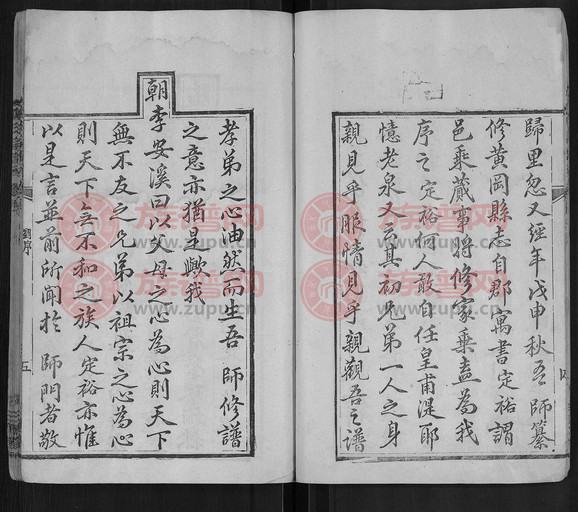 歸里忽又經年戊申秋吾 師纂
修黃岡縣志自郡寓書定裕謂
邑乘蕆事將修家乘盍為我
序之定裕何人敢自任皇甫湜耶
憶老泉又云其初兄弟一人之身
親見乎服情見乎親觀吾之譜
孝弟之心油然而生吾 師修譜
之意亦猶是歟我
朝李安溪曰以父母之心為心則天下
無不友之兄弟以祖宗之心為心
則天下無不和之族人定裕亦惟
以是言並前所聞於 師門者敬
劉序
五
族譜网
www.zupu.cn
族譜网
www.zupu.cn
族譜网
www.zupu.cn
族譜网
www.zupu.cn